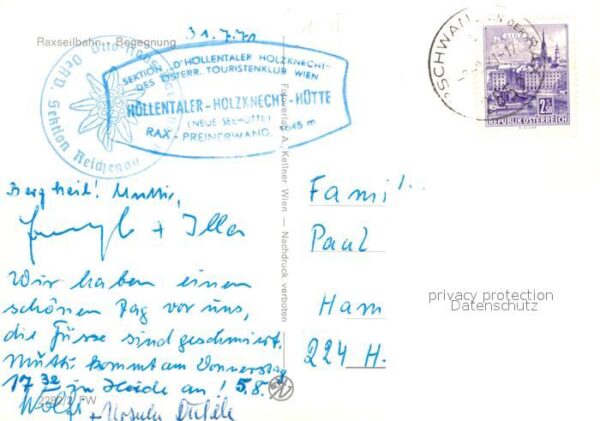 31.7.71
Raxseilbahn, Begegnung
Otto-Haus
OeAV. Sektion Reichenau
SEKTION "D'HÖLLENTALER HOLZKNECHT"
DES ÖSTERR. TOURISTENKLUB WIEN
HÖLLENTALER-HOLZKNECHT-HÜTTE
(NEUE SEEHÜTTE)
RAX-PREINERWAND, 1645 m
SCHWARZAU
2.50
REPUBLIK ÖSTERREICH
Fotoverlag A. Kellner Wien — Nachdruck verboten
Bergheil! Mutti,
+ Illa
Wir haben einen
schönen Tag vor uns,
die Füsse sind geschmiert.
Mutti kommt am Donnerstag
17 32 in Heide an! 5.8.
Wolfg. + Ursula
Fami
Paul
Ham
224 H.
privacy protection
Datenschutz
2282/2 FW